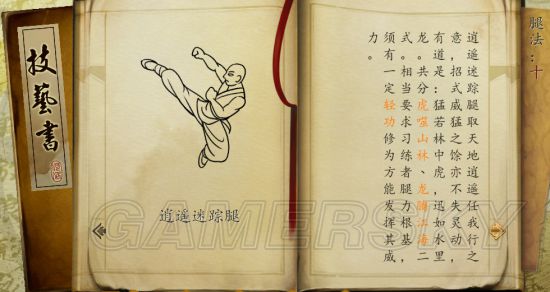 腿法：十
逍遥迷踪腿取天地逍遥任我行之
意，招式威猛之馀亦不失灵动，
有道是：猛若林中虎，迅如水里
龙。共分虎噬山林、龙腾江海二
式。相当要求习练者腿力根基，
须有一定轻功修为方能发挥其威
力。
逍遥迷踪腿
技藝書
GAMERSKY